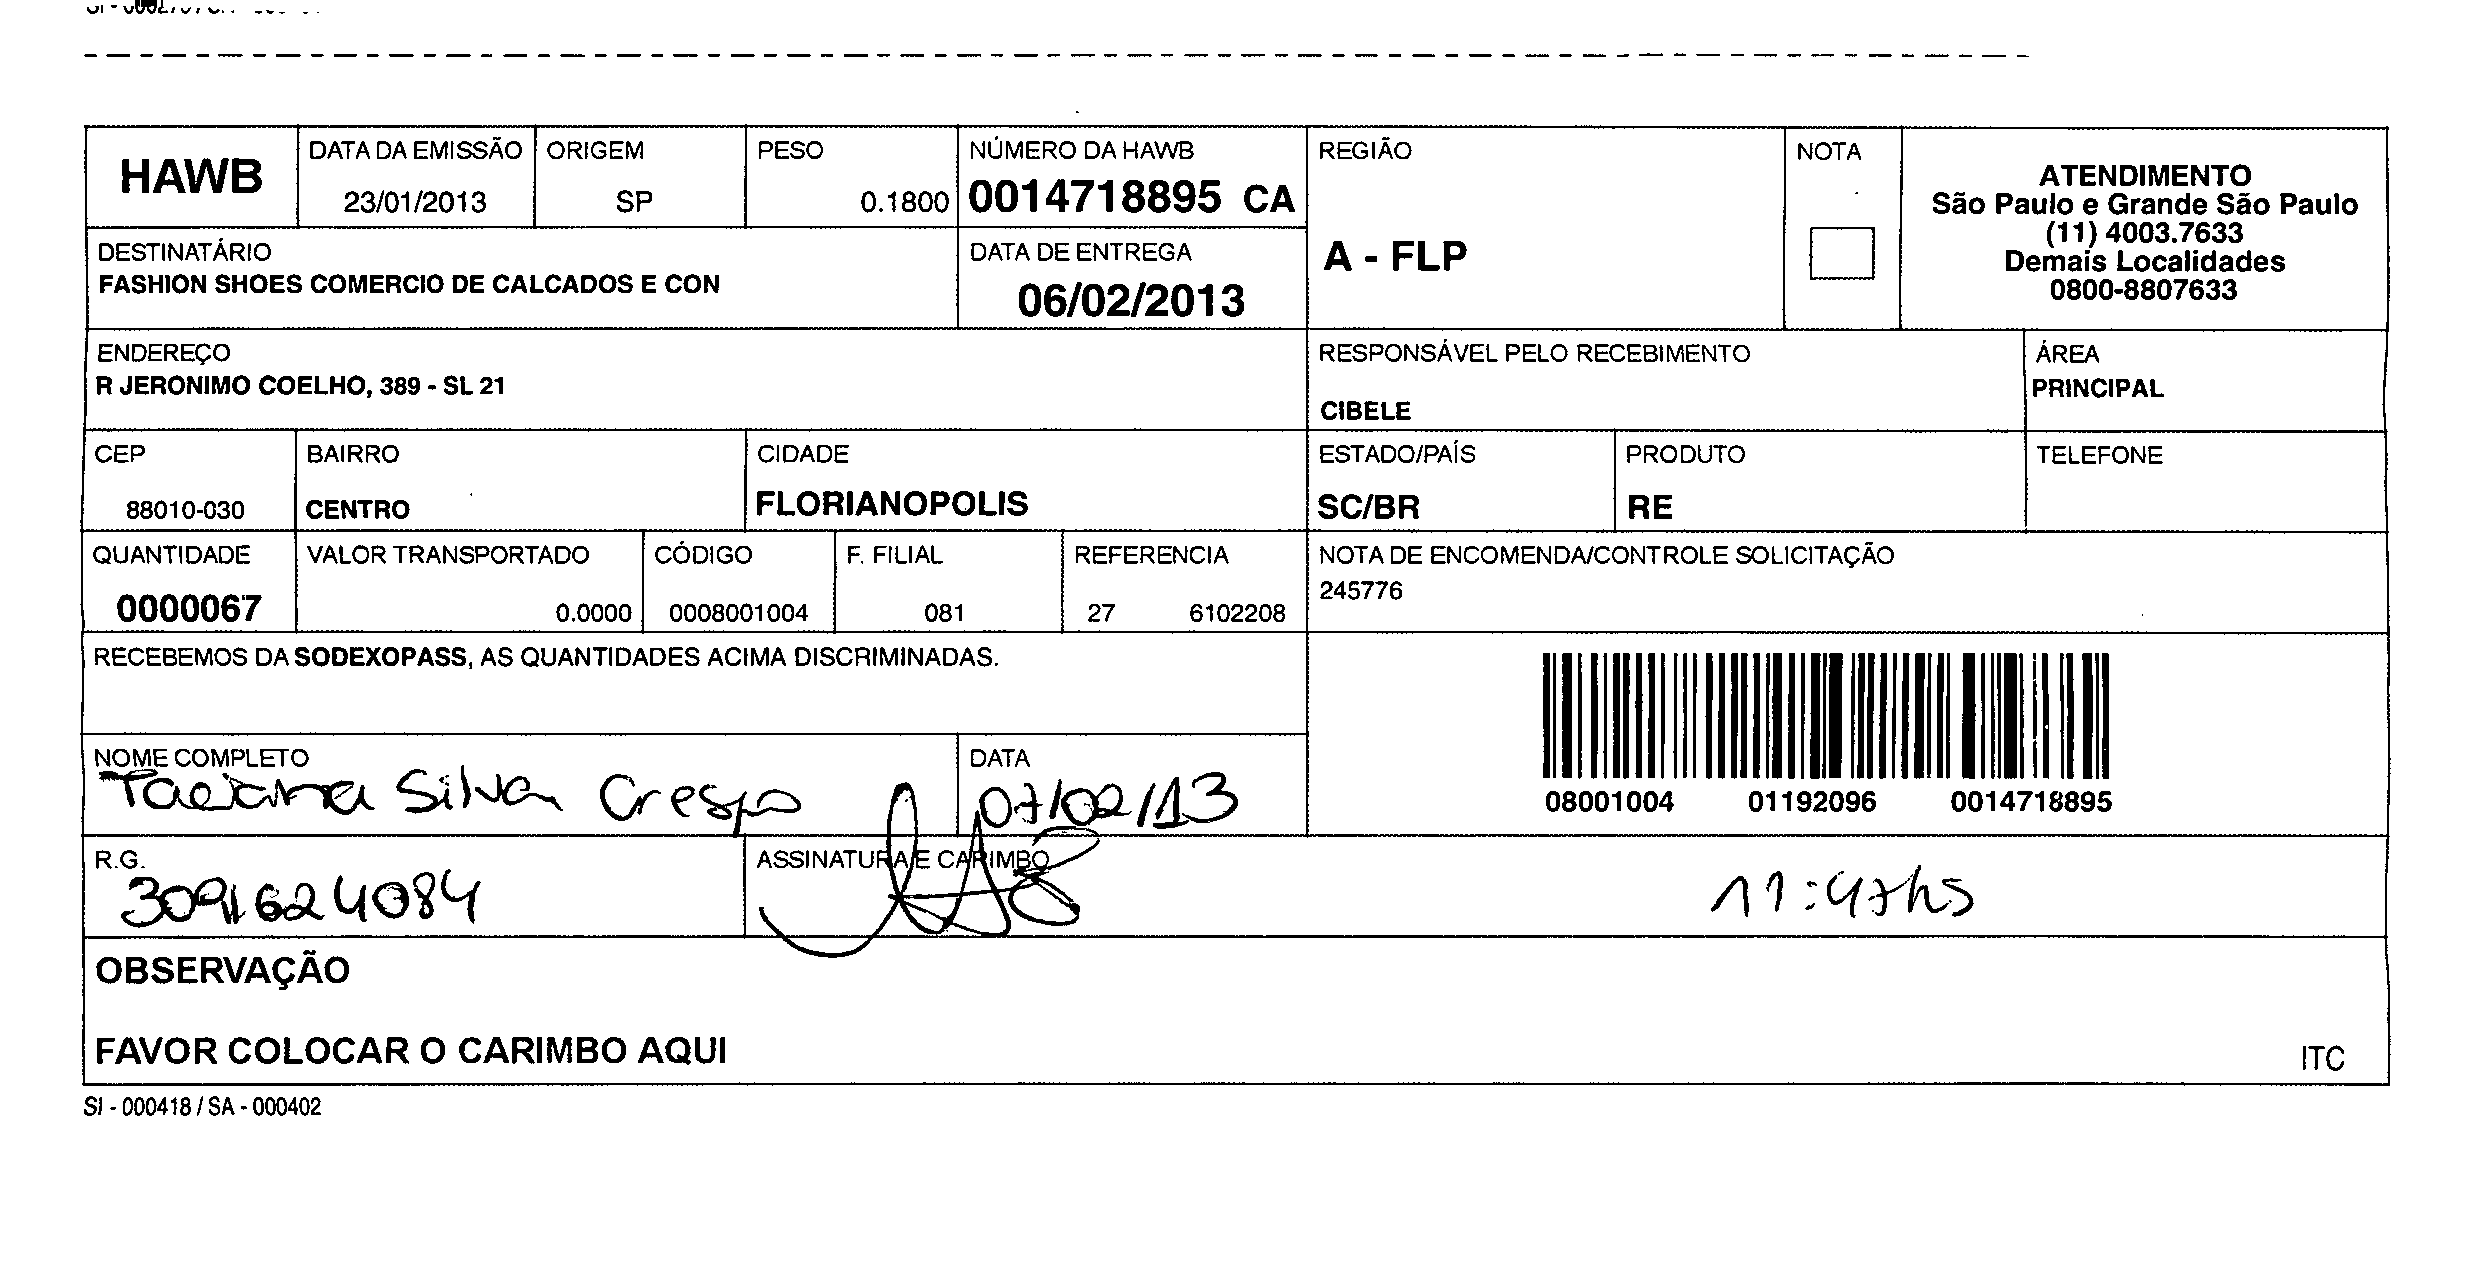 HAWB
DATA DA EMISSÃO
23/01/2013
ORIGEM
SP
PESO
0.1800
NÚMERO DA HAWB
0014718895 CA
REGIÃO
A - FLP
NOTA
ATENDIMENTO
São Paulo e Grande São Paulo
(11) 4003.7633
Demais Localidades
0800-8807633
DESTINATÁRIO
FASHION SHOES COMERCIO DE CALCADOS E CON
DATA DE ENTREGA
06/02/2013
ENDEREÇO
R JERONIMO COELHO, 389 - SL 21
RESPONSÁVEL PELO RECEBIMENTO
CIBELE
ÁREA
PRINCIPAL
CEP
88010-030
BAIRRO
CENTRO
CIDADE
FLORIANOPOLIS
ESTADO/PAÍS
SC/BR
PRODUTO
RE
TELEFONE
QUANTIDADE
0000067
VALOR TRANSPORTADO
0.0000
CÓDIGO
0008001004
F. FILIAL
081
REFERENCIA
27 6102208
NOTA DE ENCOMENDA/CONTROLE SOLICITAÇÃO
245776
RECEBEMOS DA SODEXOPASS, AS QUANTIDADES ACIMA DISCRIMINADAS.
08001004 01192096 0014718895
NOME COMPLETO
Silva Crespo
DATA
07/02/13
R.G.
3091624084
ASSINATURA E CARIMBO
11:47hs
OBSERVAÇÃO
FAVOR COLOCAR O CARIMBO AQUI
ITC
SI - 000418 / SA - 000402